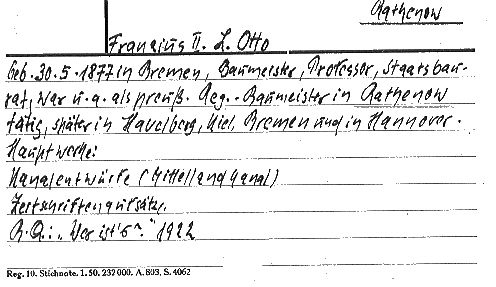 Rathenow
Franzius II. L. Otto
Geb. 30.5.1877 in Bremen, Baumeister, Professor, Staatsbau-
rat, war u.a. als preuß. Reg.-Baumeister in Rathenow
tätig, später in Havelberg, Kiel, Bremen und in Hannover.
Hauptwerke:
Kanalentwürfe (Mittellandkanal)
Zeitschriftenaufsätze.
B.Q.: „Wer ist's?" 1922
Reg. 10. Stichnote. 1. 50. 232000. A. 803. S. 4062